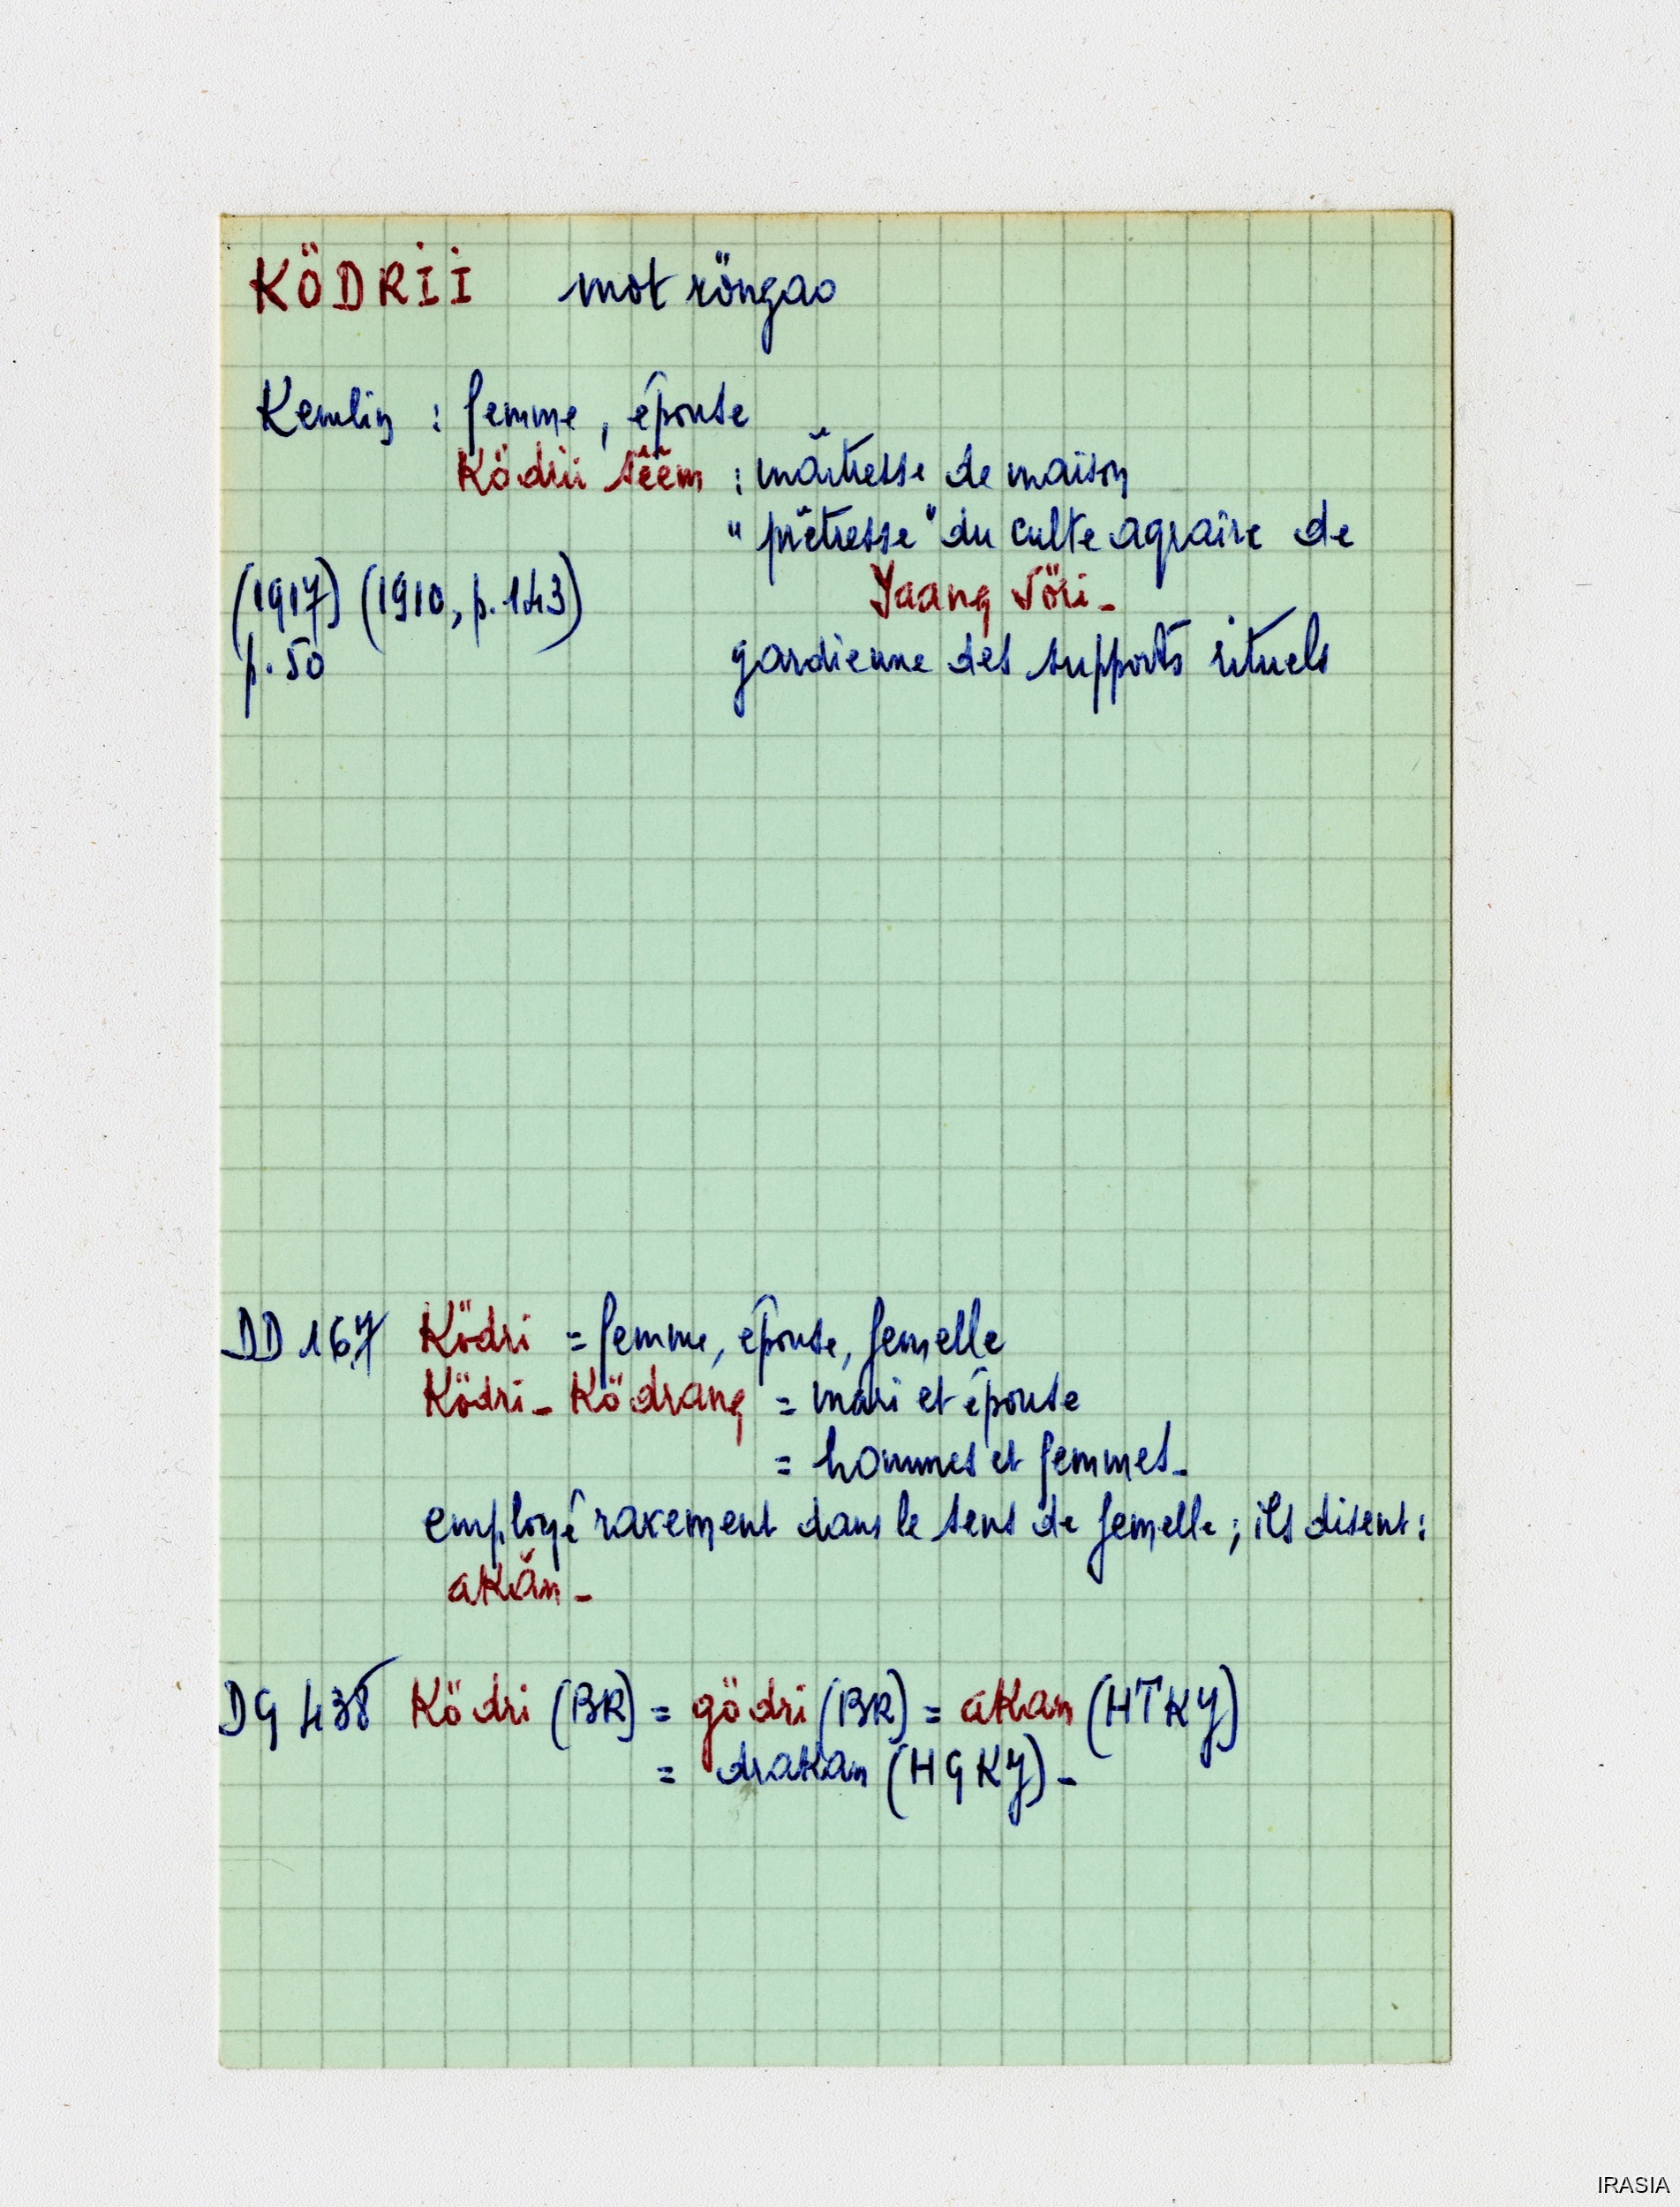 KÖDRII mot röngao
Kemlin : femme, épouse
Ködrii sêêm : maîtresse de maison
"prêtresse" du culte agraire de
(1917) (1910, p.143) Yaang Söri_
p.50 gardienne des supports rituels
DD 167 Ködri = femme, épouse, femelle
Ködri_Ködrang = mari et épouse
= hommes et femmes_
employé rarement dans le sens de femelle ; ils disent :
akăn_
DG 438 Ködri (BR) = gödri (BR) = akan (HTKY)
= drakan (HGKY)_
IRASIA